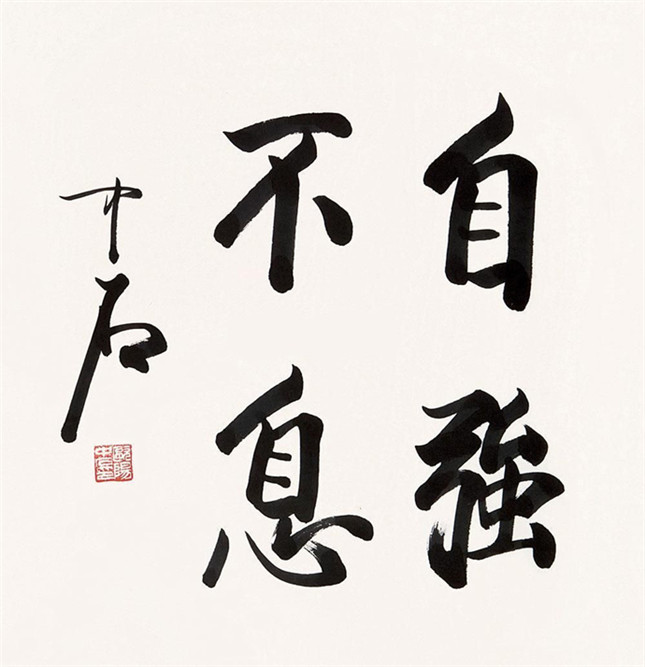 自強
不息
中石
歐陽中石